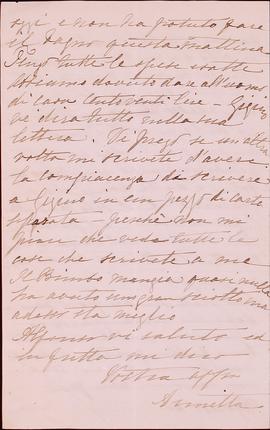 oggi e non ha potuto fare
il bagno questa mattina
Tengo tutte le spese esatte
Abbiamo dovuto dare all'uomo
di casa cento venti lire - Gigino
ve dirà tutto nella sua
lettera. Vi prego se un altra
volta me scrivete d'avere
la compiacenza di scrivere
a Gigino in un pezzo di carta
separata perchè non mi
piace che veda tutte le
cose che scrivete a me
Il Bimbo mangia quasi nulla
ha avuto un gran sciolta ma
adesso sta meglio
Alfonso vi saluta ed
in fretta mi dico
Vostra affma
Annetta